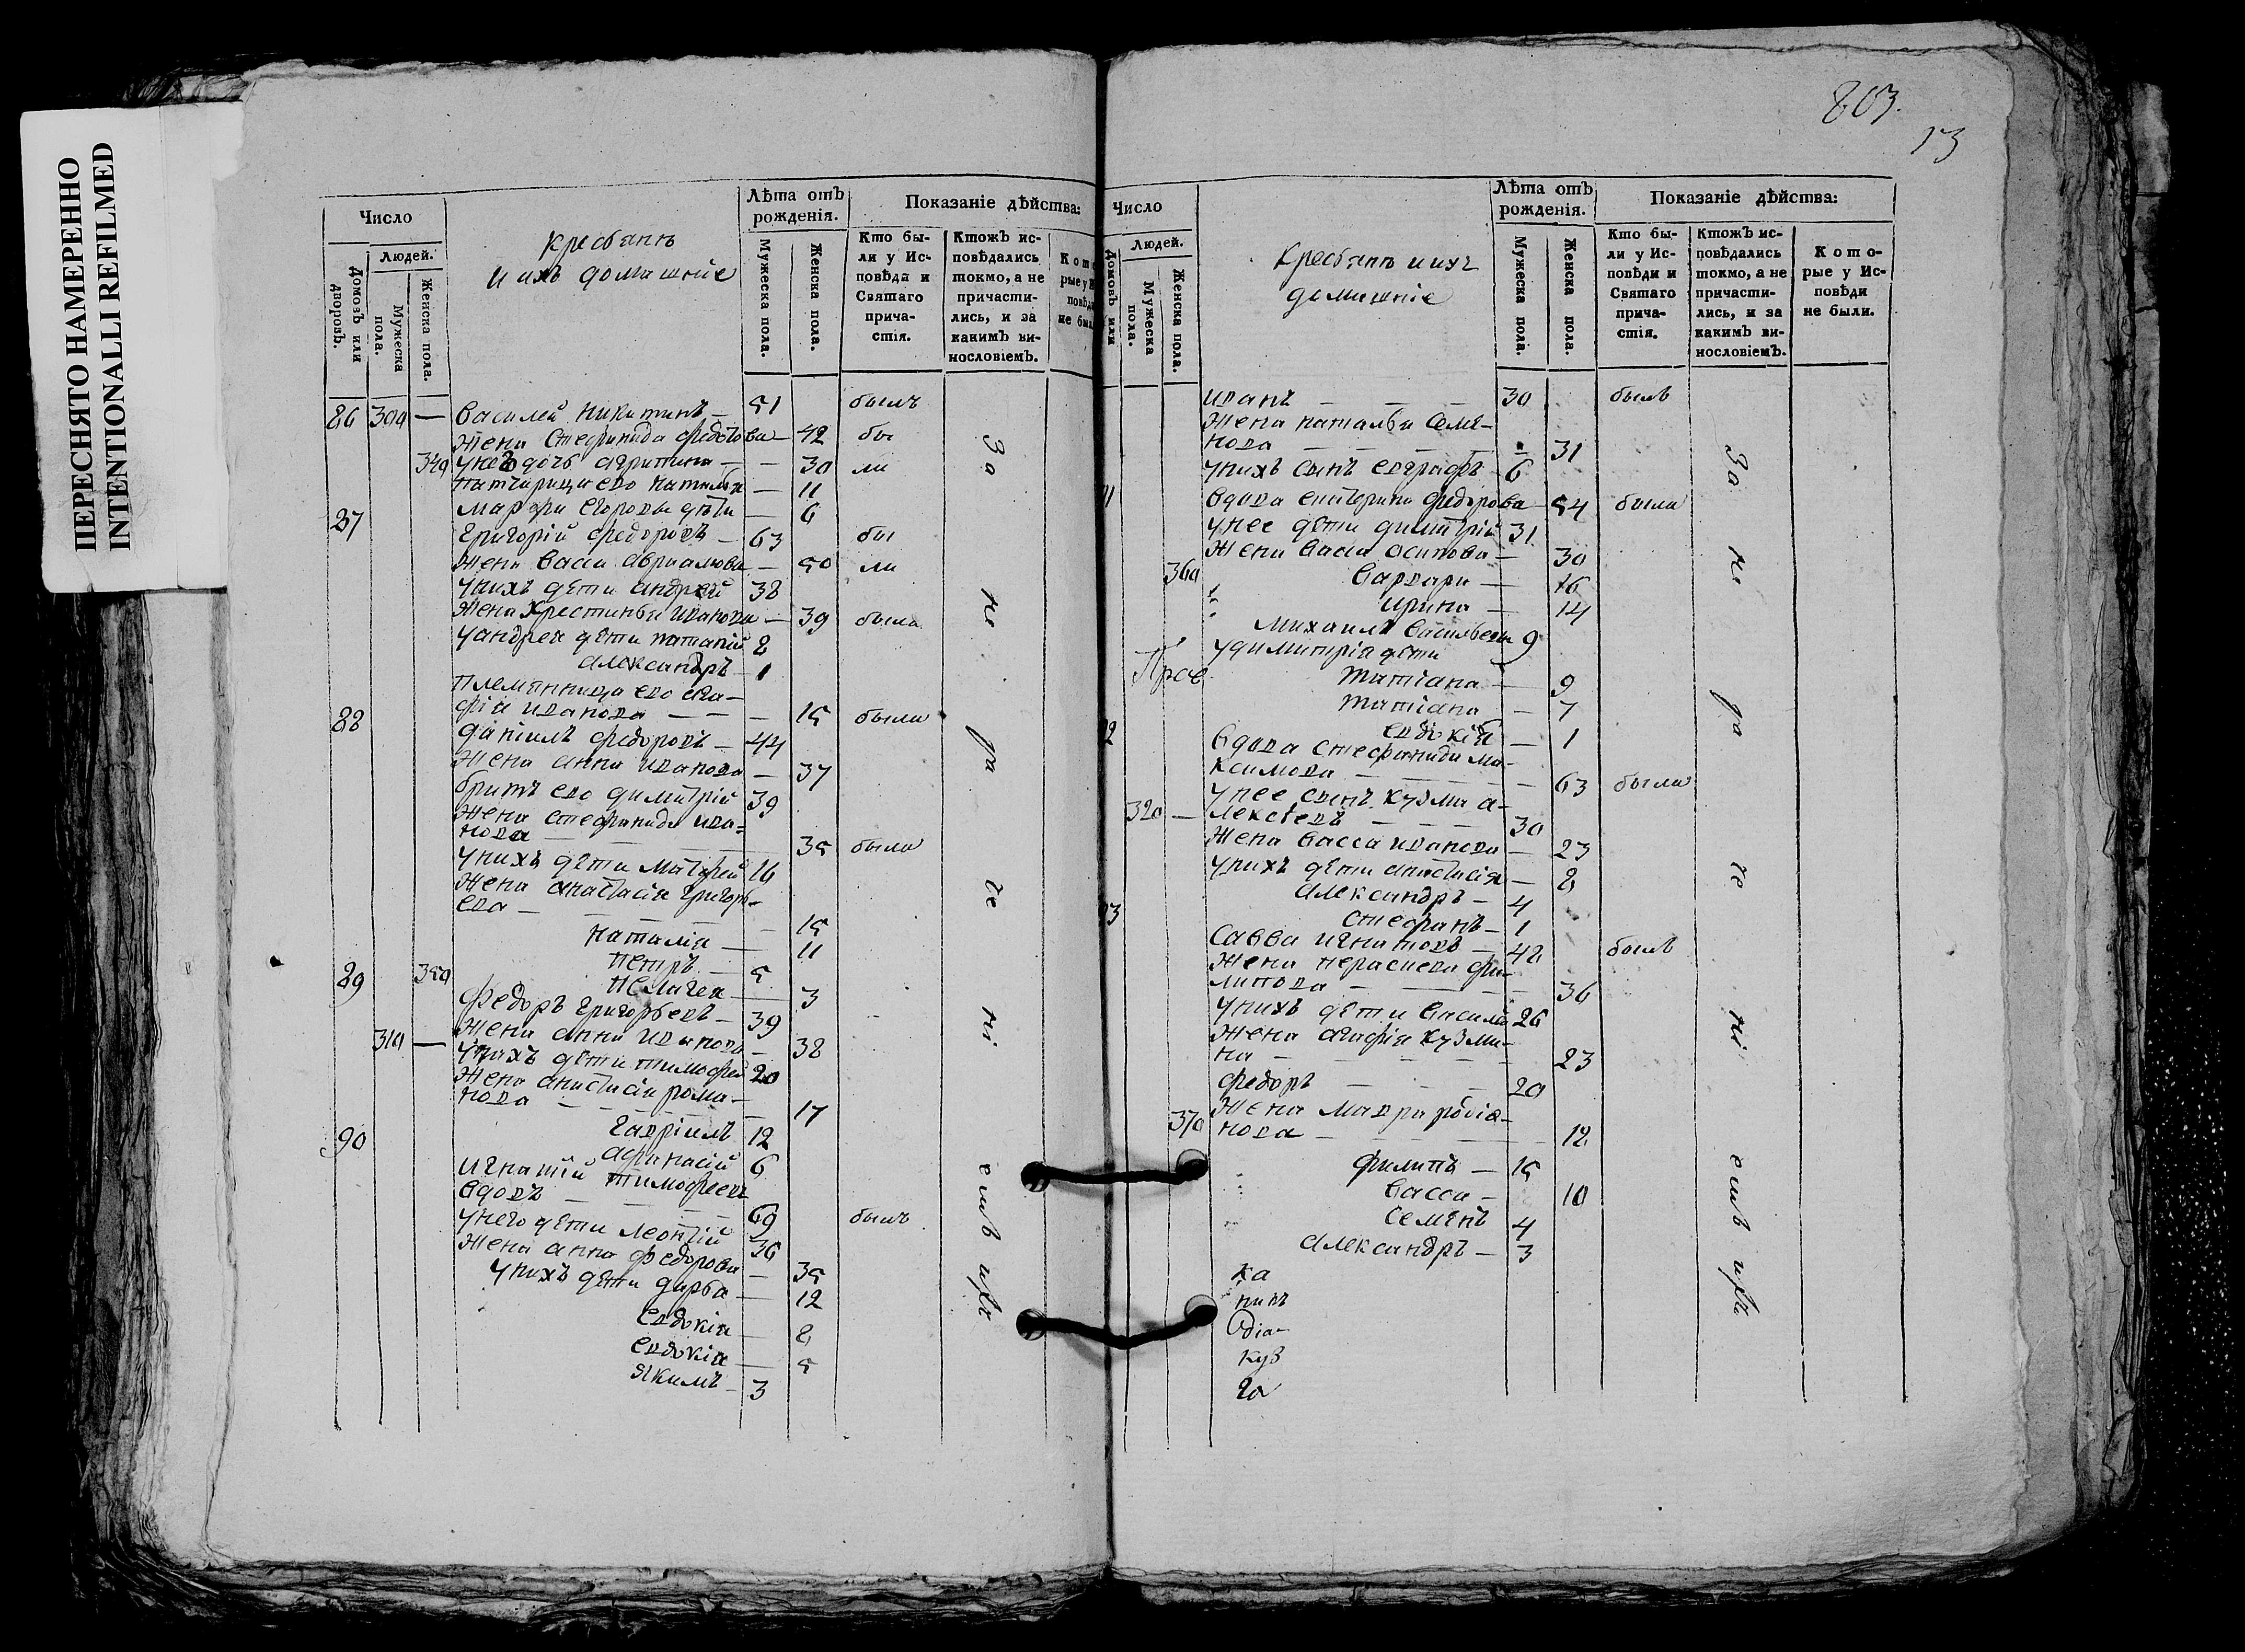 ПЕРЕСНЯТО НАМЕРЕННО
INTENTIONALLI REFILMED
803.
13
Число
Людей.
Домовъ или дворовъ.
Мужеска пола.
Женска пола.
крестьянъ
и ихъ домашніе
Лѣта отъ рожденія.
Мужеска пола.
Женска пола.
Показаніе дѣйства:
Кто были у Исповѣди и Святаго причастія.
Ктожъ исповѣдались токмо, а не причастились, и за какимъ винословіемъ.
86 300 — Василей Никитинъ — 51 былъ
Жена Стефанида федотова — 42 бы
340 у него дочь агрипина — — 30 ли
падчерица его наталья — 11
марфа егоровы дѣти — 6
87 Григорій федоровъ — 63 бы
Жена Васса — 50 ли
у нихъ дѣти андрей 38
Жена Хрестинья иванова — 39 была
у андрея дѣти 8
александръ — 1
племянница его ага-
фія иванова — — — 15 была
88 даніилъ федоровъ — 44
Жена анна иванова — 37
братъ его димитрій 39
Жена стефанида ива-
нова — — — 35 была
у нихъ дѣти матфей 16
Жена анастасія григорь-
ева — — — 15
наталія — 11
Петръ — 5
89 350 Пелагея — 3
федоръ григорьевъ — 39
Жена анна иванова — 38
310 — у нихъ дѣти тимофей 20
Жена анастасія рома-
нова — — — 17
гавріилъ 12
90 афанасій 6
игнатій тимофеевъ
вдовъ — — — 69 былъ
у него дѣти леонтій 36
Жена анна федорова — 35
у нихъ дѣти дарья — 12
евдокія — 8
евдокія — 5
якимъ — 3
За не
Число
Людей.
Мужеска пола.
Женска пола.
Крестьянъ и ихъ
домашніе
Лѣта отъ рожденія.
Мужеска пола.
Женска пола.
Показаніе дѣйства:
Кто были у Исповѣди и Святаго причастія.
Ктожъ исповѣдались токмо, а не причастились, и за какимъ винословіемъ.
Которые у Исповѣди не были.
иванъ — — — 30 былъ
Жена наталья Семе-
нова — — — 31
у нихъ сынъ евграфъ — 6
1 вдова екатерина федорова 54 была
у нее дѣти димитрій 31
Жена васса осипова — 30
360 варвара — 16
ирина — 14
михаилъ васильевъ 9
у димитрія дѣти
Татіана — 9
Татіана — 7
2 евдокія — 1
вдова стефанида ма-
ксимова — — — 63 была
у нее сынъ кузма а-
320 — лексѣевъ — — — 30
Жена васса иванова — 23
у нихъ дѣти анастасія — 8
александръ — 4
3 стефанъ — 1
савва игнатовъ — 42 былъ
Жена фи-
липова — — — 36
у нихъ дѣти василій 26
Жена агафія кузми-
на — — — 23
федоръ — — — 20
Жена мавра родіо-
370 нова — — — 18
филипъ — 15
васса — 10
семенъ 4
александръ — 3
ка
куз
га
За не